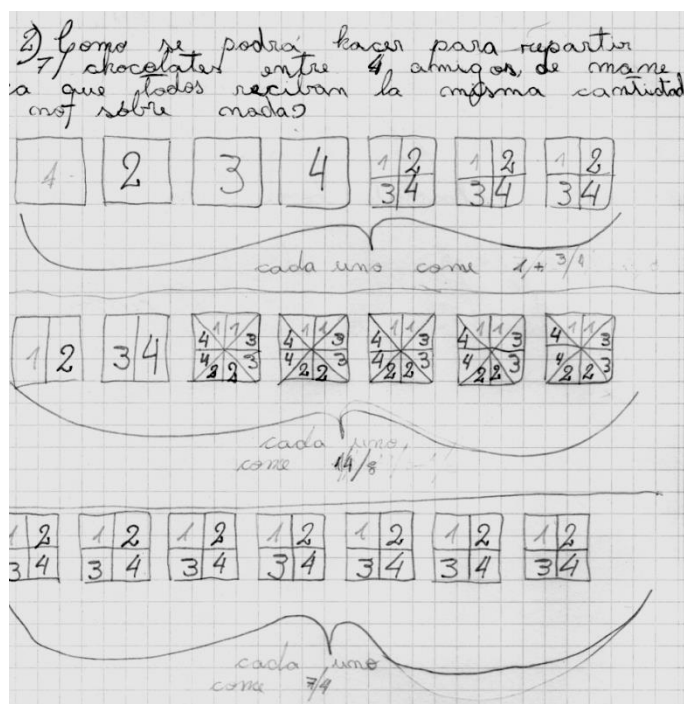 2) Como se podrá hacer para repartir
7 chocolates entre 4 amigos, de mane
a que todos reciban la misma cantidad
no sobre nada?
1 2 3 4 1 2 1 2 1 2
3 4 3 4 3 4
cada uno come 1 + 3/4
1 2 3 4 4 1 1 3 4 1 1 3 4 1 1 3 4 1 1 3 4 1 1 3
4 2 2 3 4 2 2 3 4 2 2 3 4 2 2 3 4 2 2 3
cada uno
come 14/8
1 2 1 2 1 2 1 2 1 2 1 2 1 2
3 4 3 4 3 4 3 4 3 4 3 4 3 4
cada uno
come 7/4